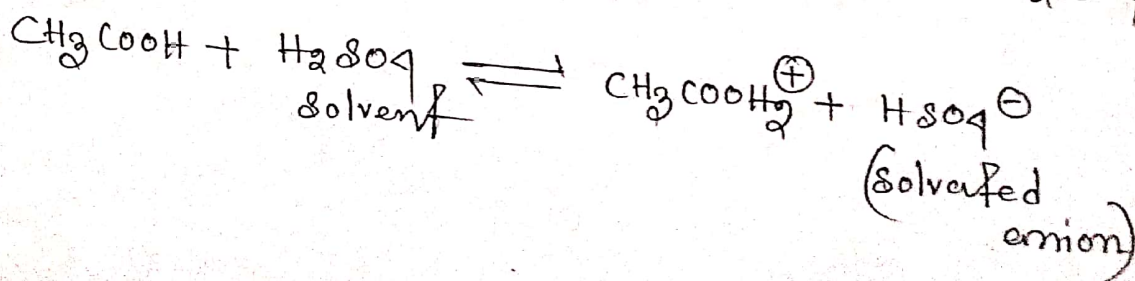 CH3COOH + H2SO4 ⇌ CH3COOH2⊕ + HSO4⊖
Solvent
(Solvated
anion)